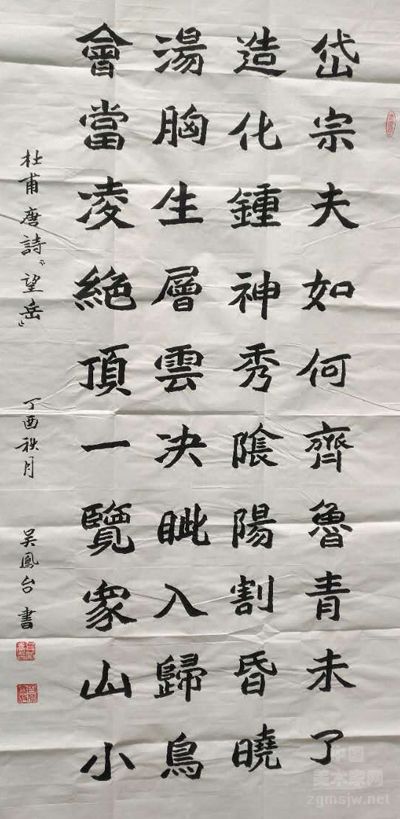 岱宗夫如何齊魯青未了
造化鍾神秀隂陽割昏曉
湯胸生層雲决眦入歸鳥
會當凌絶頂一覽衆山小
杜甫唐詩“望岳” 丁酉秋月 吴鳳台書
中国
美术家网
zgmsjw.net